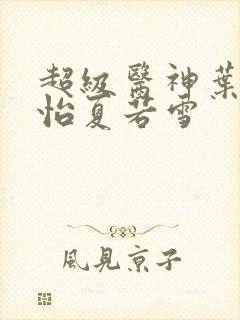 超級醫神葉
怡夏若雪
風見京子